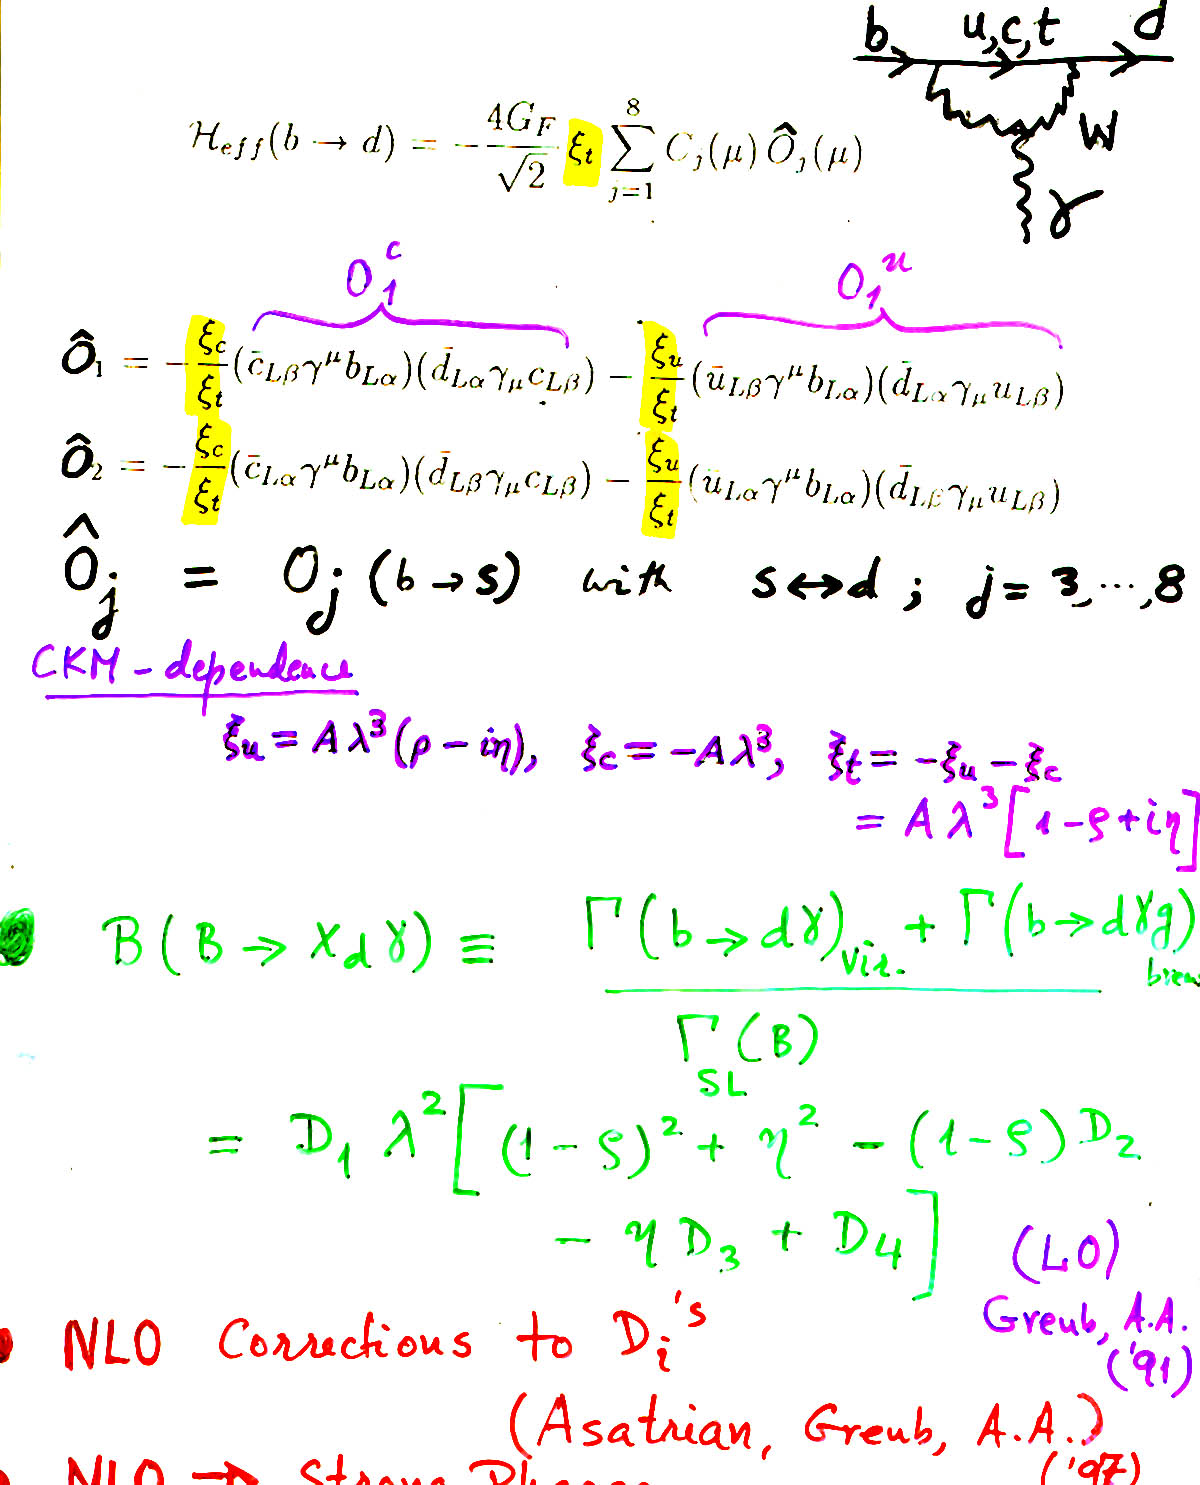 b u,c,t d
W
γ
ℋeff(b → d) = −4G_F/√2 ξt ∑_{j=1}^{8} Cj(μ) Ôj(μ)
O₁ᶜ O₁ᵘ
Ô₁ = −ξc/ξt (c̄Lβ γ^μ bLα)(d̄Lα γμ cLβ) − ξu/ξt (ūLβ γ^μ bLα)(d̄Lα γμ uLβ)
Ô₂ = −ξc/ξt (c̄Lα γ^μ bLα)(d̄Lβ γμ cLβ) − ξu/ξt (ūLα γ^μ bLα)(d̄Lβ γμ uLβ)
Ôj = Oj (b → s) with s ↔ d ; j = 3,...,8
CKM - dependence
ξu = Aλ³(ρ − iη), ξc = −Aλ³, ξt = −ξu − ξc
= Aλ³[1−ρ+iη]
B(B → Xd γ) ≡ Γ(b → dγ)vir. + Γ(b → dγg)
Γ_SL(B)
= D₁ λ² [(1−ρ)² + η² − (1−ρ) D₂
− η D₃ + D₄] (LO)
Greub, A.A.
('91)
NLO Corrections to Di's
(Asatrian, Greub, A.A.)
('97)
NLO → Strong Phases